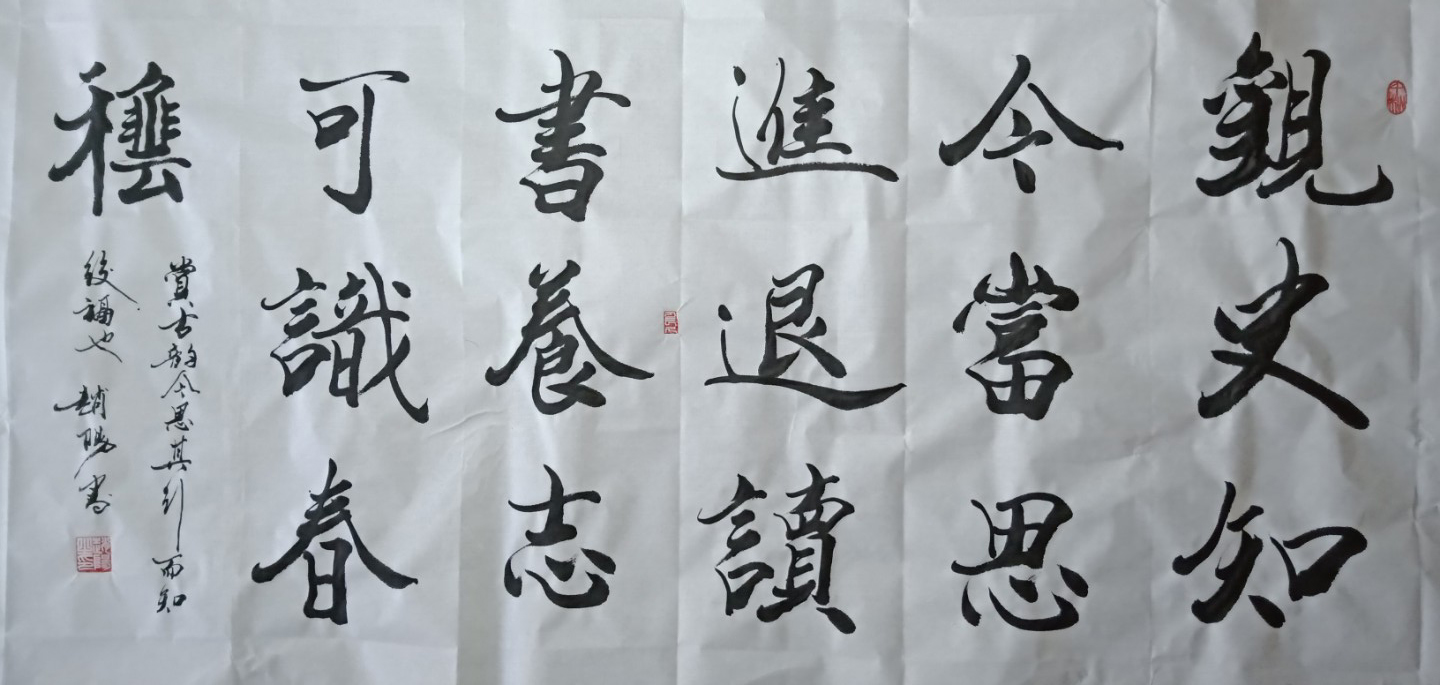 觀史知
今當思
進退讀
書養志
可識春
賞古韵今思其行而知
後福也 趙陽書